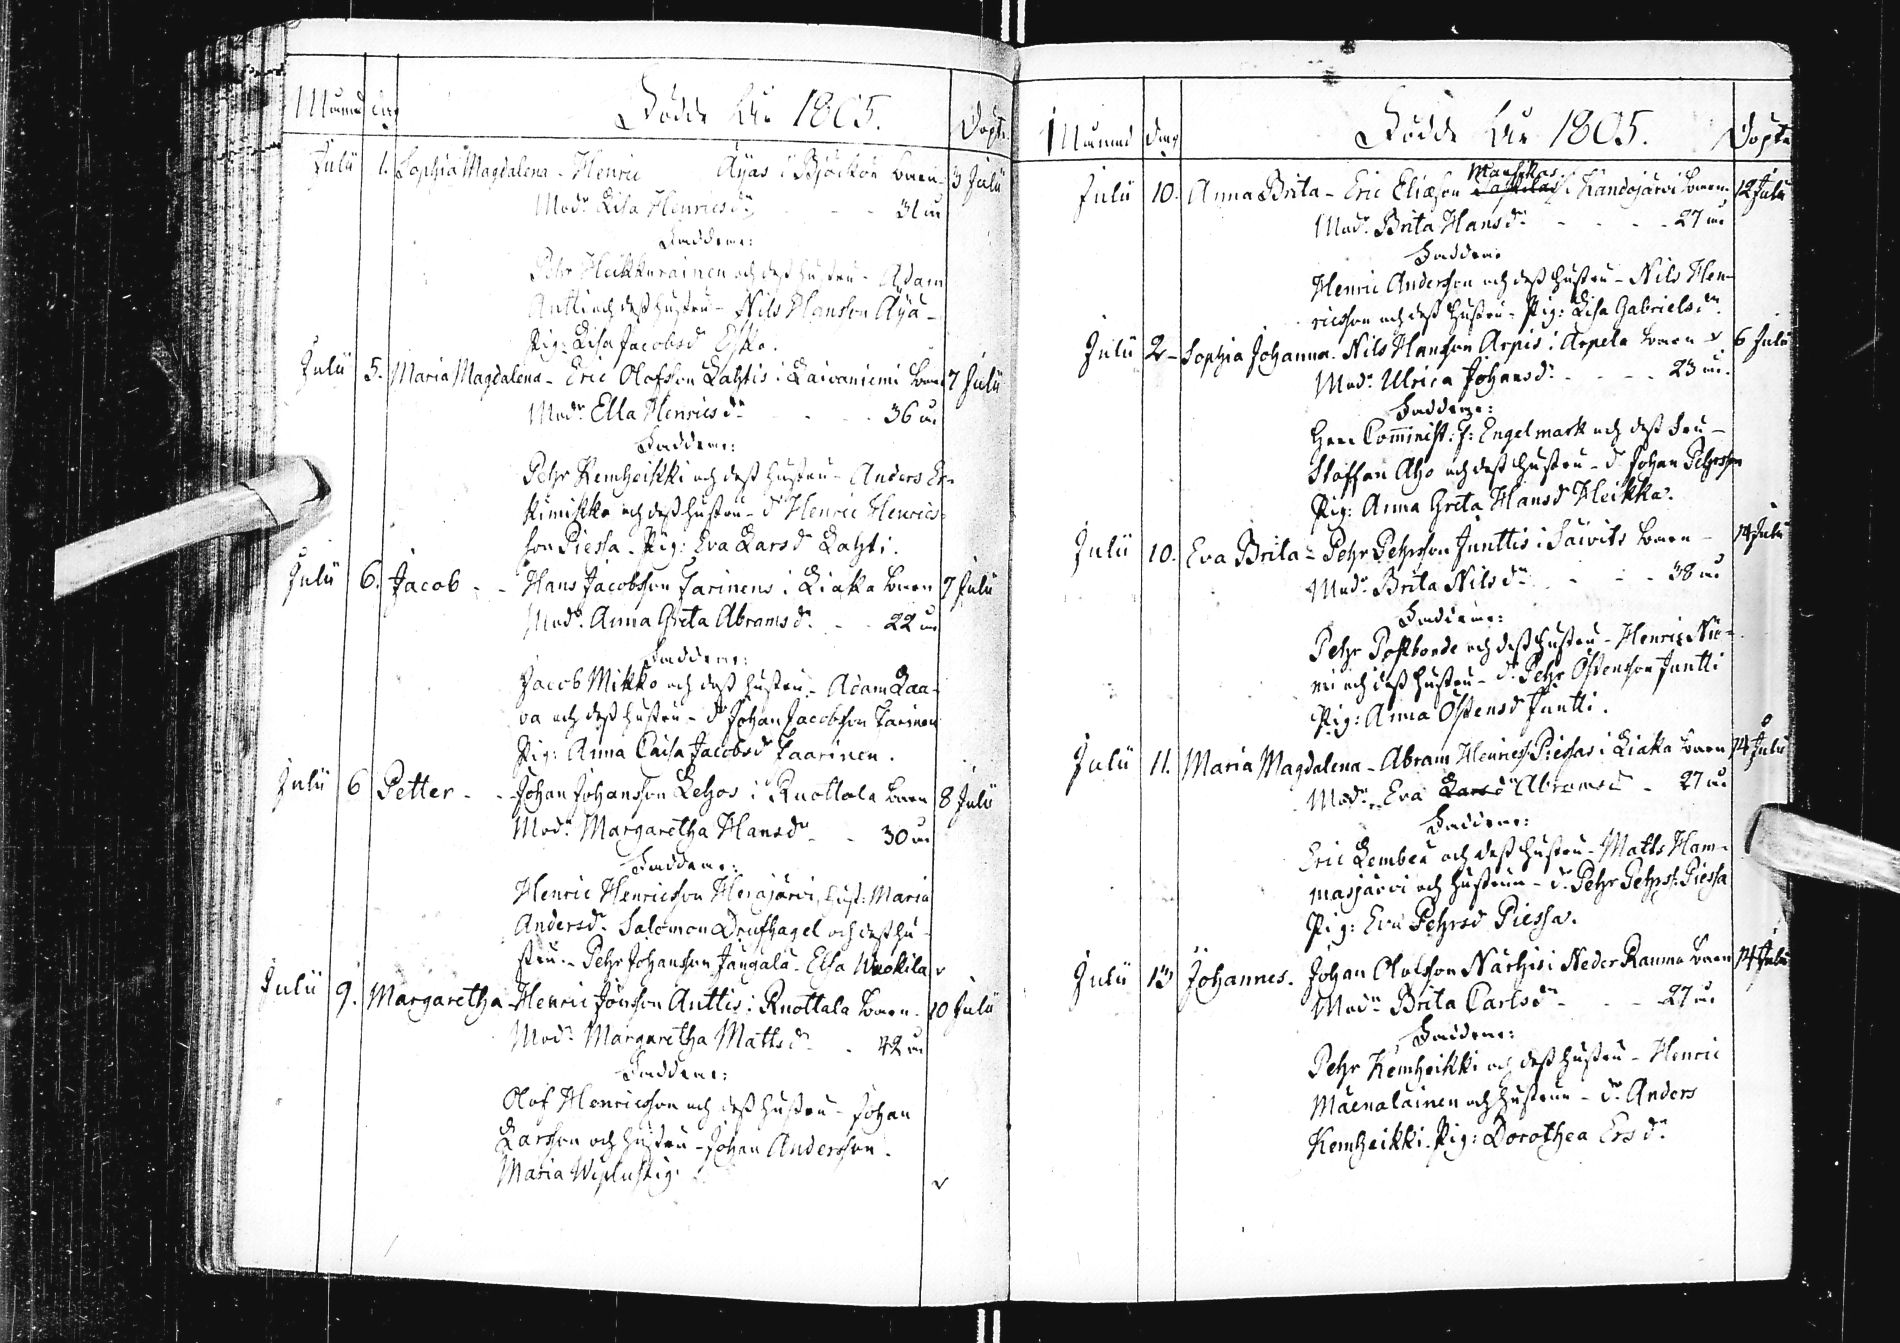 Månad dag Födde År 1805. Döpte
Julii 1. Sophia Magdalena - Henric Äyäs i Björkön barn - 3 Julii
Modr. Lisa Henricsdr - - 31 år
Faddrar:
Pehr Heikkurainen och dess hustru - Adam
Antti och dess hustru - Nils Hansson Äyä -
Pig: Lisa Jacobsd Esko.
Julii 5. Maria Magdalena - Eric Olofsson Lahtis i Laivaniemi barn 7 Julii
Modr Ella Henricsdr - - 36 år
Faddrar:
Pehr Kemheikki och dess hustru - Anders Er-
kinikka och dess hustru - dr Henric Henrics-
son Piessa - Pig: Eva Larsd Lahti.
Julii 6. Jacob - - Hans Jacobsson Tarinens i Liaka barn 7 Julii
Modr. Anna Greta Abramsdr - - 22 år
Faddrar:
Jacob Mikko och dess hustru - Adam Laa-
va och dess hustru - dr Johan Jacobsson Tarinen
Pig: Anna Caisa Jacobsd Taarinen.
Julii 6 Petter - - Johan Johansson Lehos i Knottala barn 8 Julii
Modr Margaretha Hansdr - - 30 år
Faddrar:
Henric Henricsson Herajärvi, hust: Maria
Andersdr. Salomon Drufhagel och dess hu-
stru - Pehr Johansson Jaugala - Elsa Wuokila
Julii 9. Margaretha - Henric Jönsson Anttis i Knottala barn - 10 Julii
Modr. Margaretha Mattsdr - - 42 år
Faddrar:
Olof Henricsson och dess hustru - Johan
Larsson och hustru - Johan Andersson.
Maria
Månad dag Födde År 1805. Döpte
Julii 10. Anna Brita - Eric Eliæson i Kandojärvi barn - 12 Julii
Modr. Brita Hansdr - - - - 27 år
Faddrar
Henric Andersson och dess hustru - Nils Hen-
ricsson och dess hustru - Pig: Lisa Gabrielsdr.
Julii 2 - Sophia Johanna. Nils Hansson Arpis i Arpela barn 6 Julii
Modr. Ulrica Johansdr - - - - 23 år.
Faddrar:
Herr Comminist: J: Engelmark och dess fru -
Staffan Aho och dess hustru - dr Johan Pehrsson
Pig: Anna Greta Hansd Heikka.
Julii 10. Eva Brita - Pehr Pehrsson Junttis i Säivits barn - 14 Julii
Modr. Brita Nilsdr - - - 38 år
Faddrar:
Pehr Postbonde och dess hustru - Henric Nie-
mi och dess hustru - dr. Pehr Östensson Juntti
Pig: Anna Östensd Juntti.
Julii 11. Maria Magdalena - Abram Henricss: Piessas i Liaka barn 14 Julii
Modr. Eva Larsdr Abramsd - 27 år
Faddrar:
Eric Lembea och dess hustru - Matts Ham-
masjärvi och hustrun - dr. Pehr Pehrss: Piessa
Pig: Eva Pehrsd Piessa.
Julii 13 Johannes. Johan Olofsson Närhis i Neder Rauma barn 14 Julii
Modr Brita Carlsdr - - - 27 år
Faddrar:
Pehr Kemheikki och dess hustru - Henric
Mäenaläinen och hustrun - dr. Anders
Kemheikki. Pig: Dorothea Ersdr.